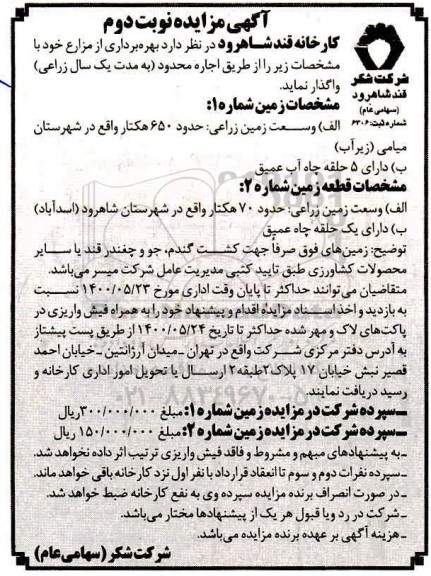 آگهی مزایده نوبت دوم
شرکت شکر
قند شاهرود
(سهامی عام)
شماره ثبت: ۶۳۰۶
کارخانه قند شـاهرود در نظر دارد بهره‌برداری از مزارع خود با
مشخصات زیر را از طریق اجاره محدود (به مدت یک سال زراعی)
واگذار نماید.
مشخصات زمین شماره ۱:
الف) وسـعت زمین زراعی: حدود ۶۵۰ هکتار واقع در شهرستان
میامی (زیرآب)
ب) دارای ۵ حلقه چاه آب عمیق
مشخصات قطعه زمین شماره ۲:
الف) وسعت زمین زراعی: حدود ۷۰ هکتار واقع در شهرستان شاهرود (اسدآباد)
ب) دارای یک حلقه چاه عمیق
توضیح: زمین‌های فوق صرفاً جهت کشـت گندم، جو و چغندر قند یا سـایر
محصولات کشاورزی طبق تایید کتبی مدیریت عامل شرکت میسر می‌باشد.
متقاضیان می‌توانند حداکثر تا پایان وقت اداری مورخ ۱۴۰۰/۰۵/۲۳ نسـبت
به بازدید و اخذ اسـناد مزایده اقدام و پیشنهاد خود را به همراه فیش واریزی در
پاکت‌های لاک و مهر شده حداکثر تا تاریخ ۱۴۰۰/۰۵/۲۴ از طریق پست پیشتاز
به آدرس دفتر مرکزی شـرکت واقع در تهران ـ میدان آرژانتین ـ خیابان احمد
قصیر نبش خیابان ۱۷ پلاک ۲ طبقه ۲ ارسـال یا تحویل امور اداری کارخانه و
رسید دریافت نمایند.
ـ سپرده شرکت در مزایده زمین شماره ۱: مبلغ ۳۰۰/۰۰۰/۰۰۰ ریال
ـ سپرده شرکت در مزایده زمین شماره ۲: مبلغ ۱۵۰/۰۰۰/۰۰۰ ریال
ـ به پیشنهادهای مبهم و مشروط و فاقد فیش واریزی ترتیب اثر داده نخواهد شد.
ـ سپرده نفرات دوم و سوم تا انعقاد قرارداد با نفر اول نزد کارخانه باقی خواهد ماند.
ـ در صورت انصراف برنده مزایده سپرده وی به نفع کارخانه ضبط خواهد شد.
ـ شرکت در رد و یا قبول هر یک از پیشنهادها مختار می‌باشد.
ـ هزینه آگهی بر عهده برنده مزایده می‌باشد.
شرکت شکر (سهامی عام)